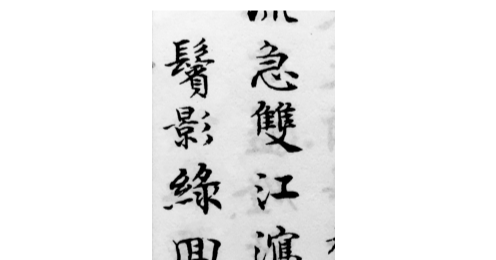 急雙江
鬢影綠